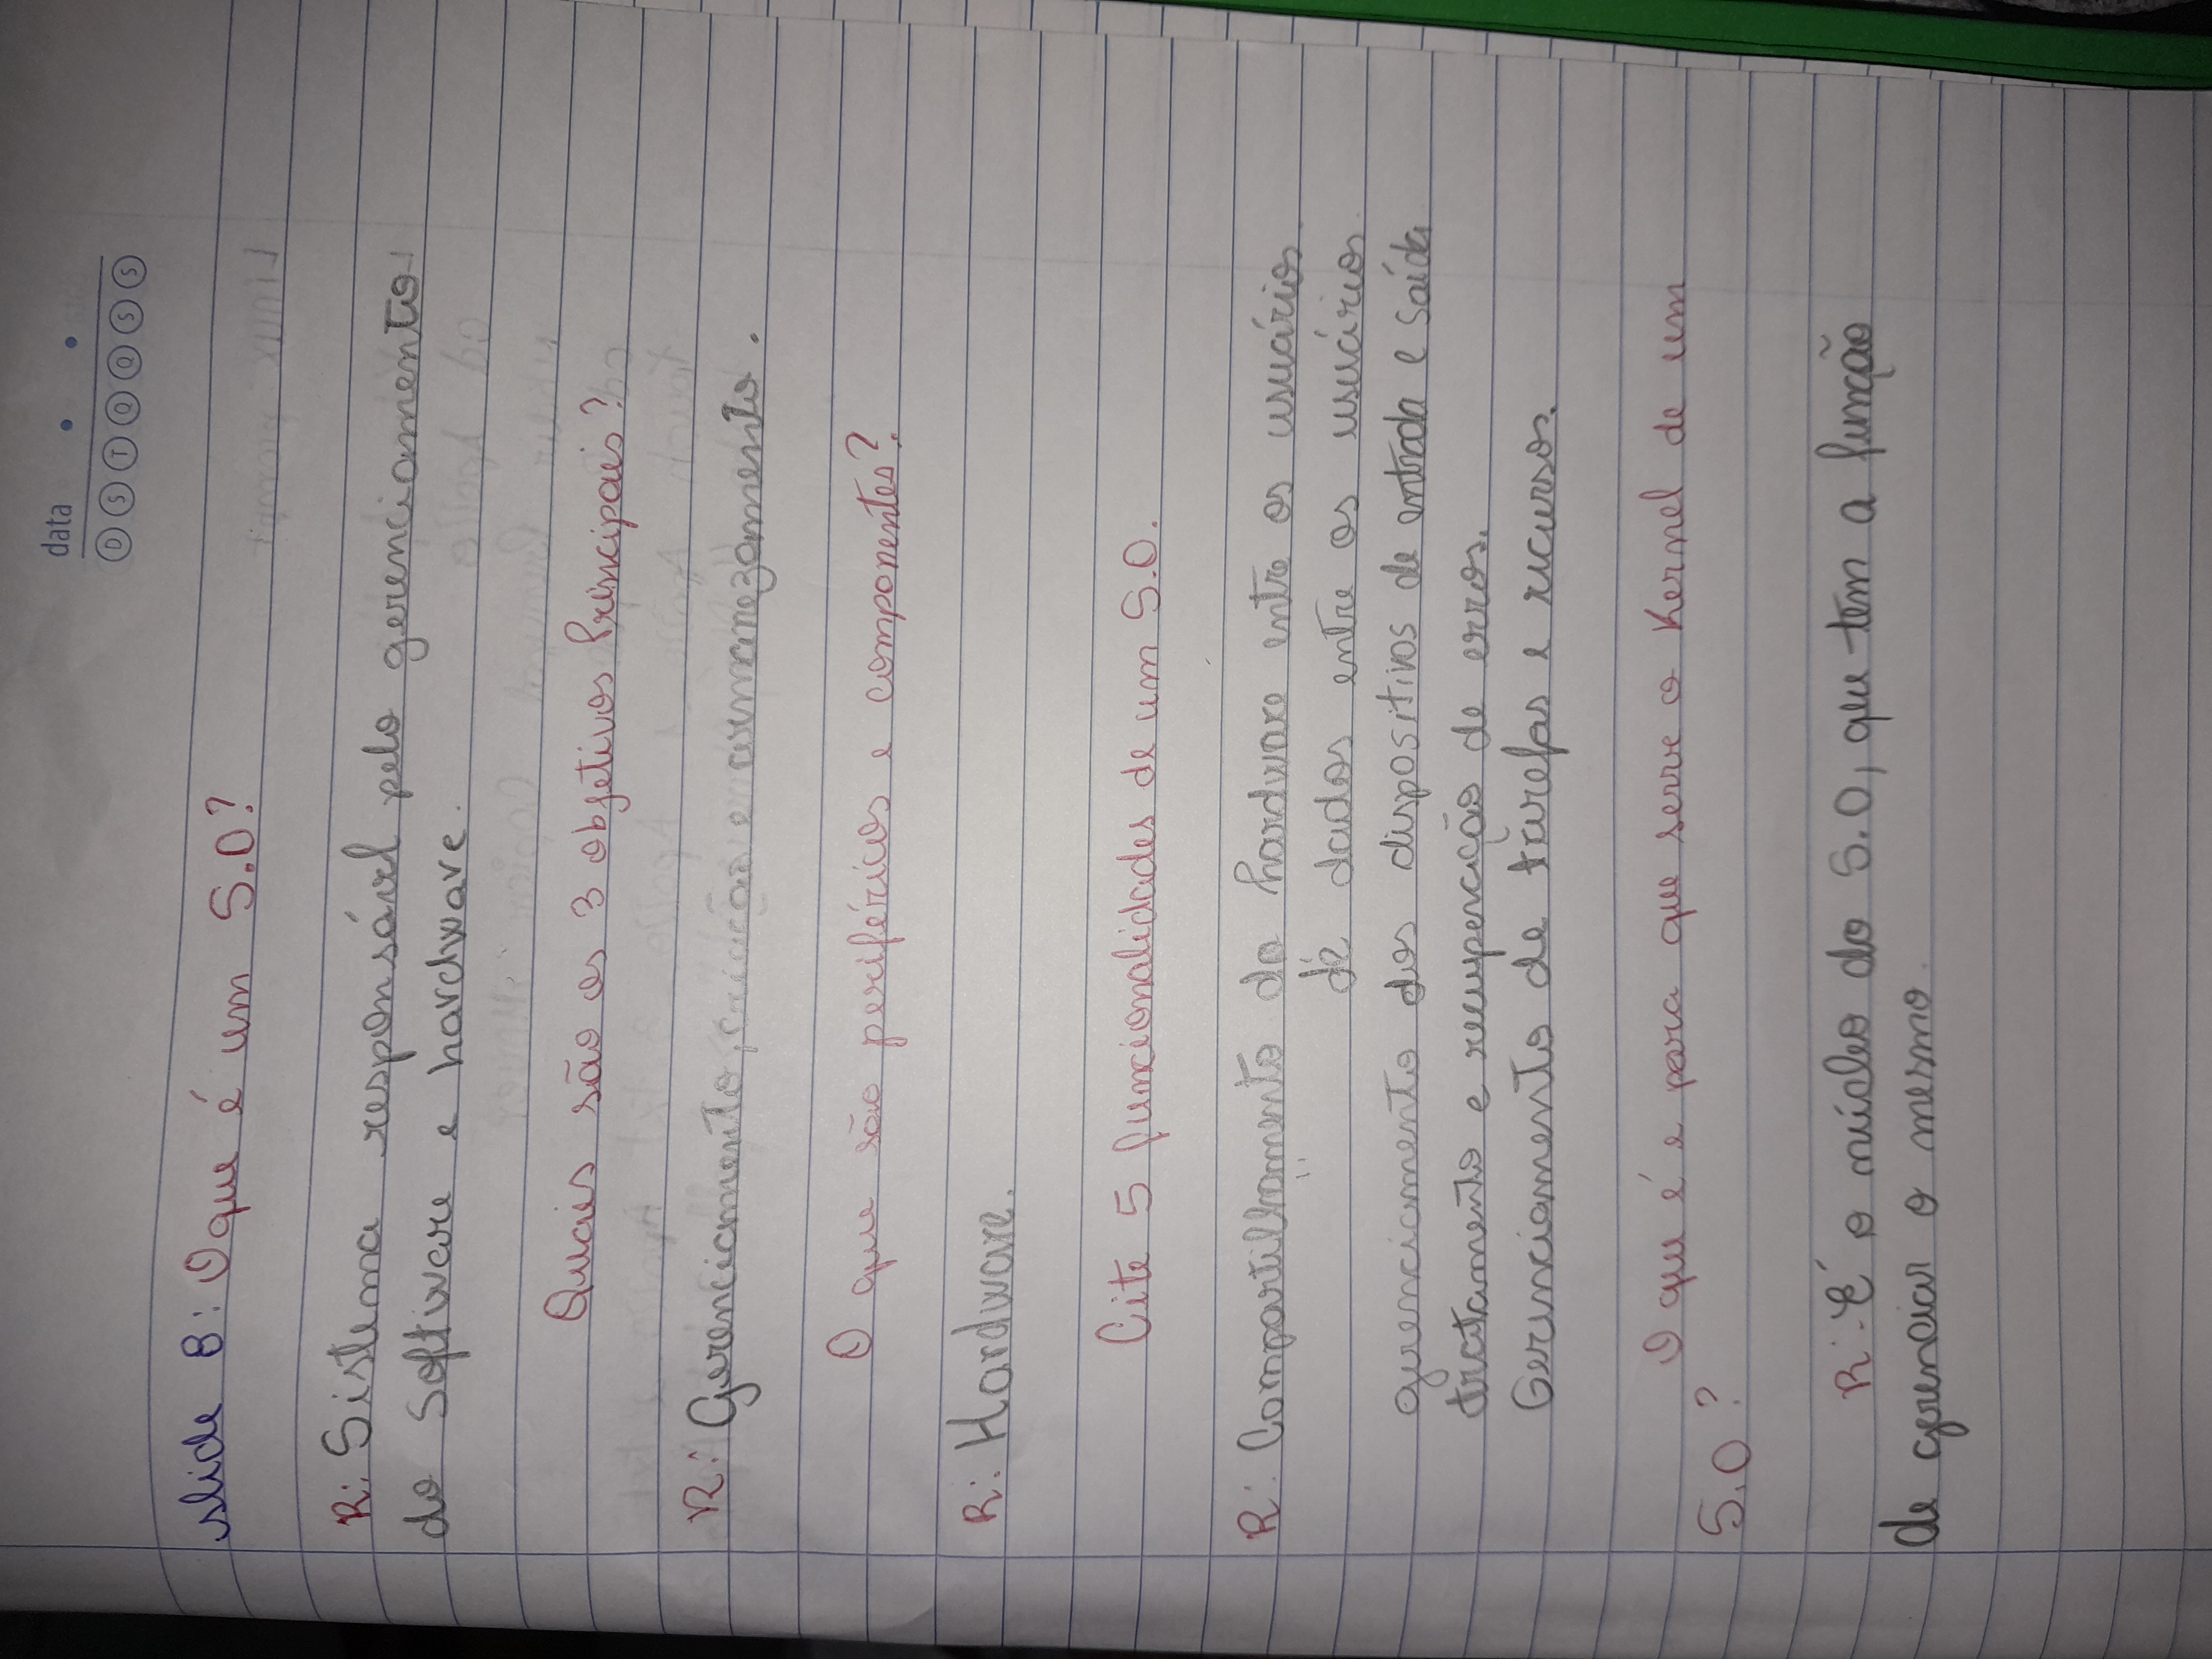 data
D S T Q Q S S
slide 8: O que é um S.O?
R: Sistema responsável pelo gerenciamento
do Software e hardware.
Quais são os 3 objetivos Principais?
R: Gerenciamento, criação e armanezamento.
O que são periféricos e componentes?
R: Hardware.
Cite 5 funcionalidades de um S.O.
R: Compartilhamento do hardware entre os usuários
" de dados entre os usuários
gerenciamento dos dispositivos de entrada e saída
tratamento e recuperação de erros.
Gerenciamento de tarefas e recursos.
O que é e para que serve o Kernel de um
S.O?
R: É o núcleo do S.O, que tem a função
de gerenciar o mesmo.